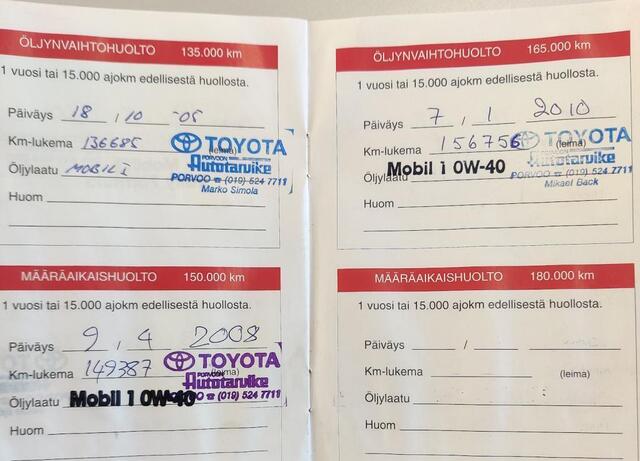 ÖLJYNVAIHTOHUOLTO 135.000 km
1 vuosi tai 15.000 ajokm edellisestä huollosta.
Päiväys 18 , 10 -05
Km-lukema 136685 (leima)
TOYOTA
PORVOON
Autotarvike
PORVOO ☎ (019) 524 7711
Marko Simola
Öljylaatu MOBIL 1
Huom
MÄÄRÄAIKAISHUOLTO 150.000 km
1 vuosi tai 15.000 ajokm edellisestä huollosta.
Päiväys 9 , 4 2008
Km-lukema 149387 (leima)
TOYOTA
PORVOON
Autotarvike
PORVOO ☎ (019) 524 7711
Öljylaatu Mobil 1 0W-40
Huom
ÖLJYNVAIHTOHUOLTO 165.000 km
1 vuosi tai 15.000 ajokm edellisestä huollosta.
Päiväys 7 , 1 2010
Km-lukema 156756 (leima)
TOYOTA
Autotarvike
PORVOO ☎ (019) 524 7711
Mikael Bäck
Öljylaatu Mobil 1 0W-40
Huom
MÄÄRÄAIKAISHUOLTO 180.000 km
1 vuosi tai 15.000 ajokm edellisestä huollosta.
Päiväys /
Km-lukema (leima)
Öljylaatu
Huom